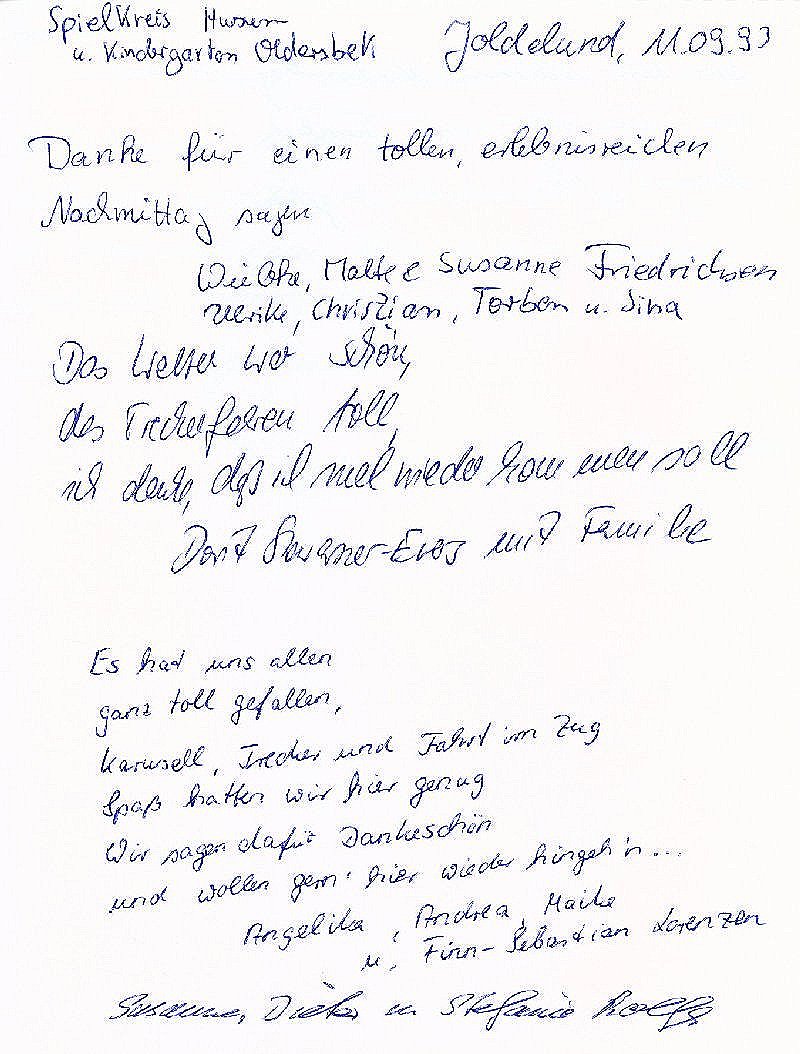 Spielkreis Husum
u. Kindergarten Oldersbek
Joldelund, 11.09.93
Danke für einen tollen, erlebnisreichen
Nachmittag sagen
Wiebke, Malte e Susanne Friedrichsen
Ulrike, Christian, Torben u. Sina
Das Wetter war schön,
das Treckerfahren toll,
ich denke, daß ich mal wieder kommen soll
mit Familie
Es hat uns allen
ganz toll gefallen,
Karusell, Trecker und Fahrt im Zug
Spaß hatten wir hier genug
Wir sagen dafür Dankeschön
und wollen gern' hier wieder hingeh'n...
Angelika, Andrea, Maike
u. Finn-Sebastian Lorenzen
Susanne, Dieter u. Stefanie Rolfs